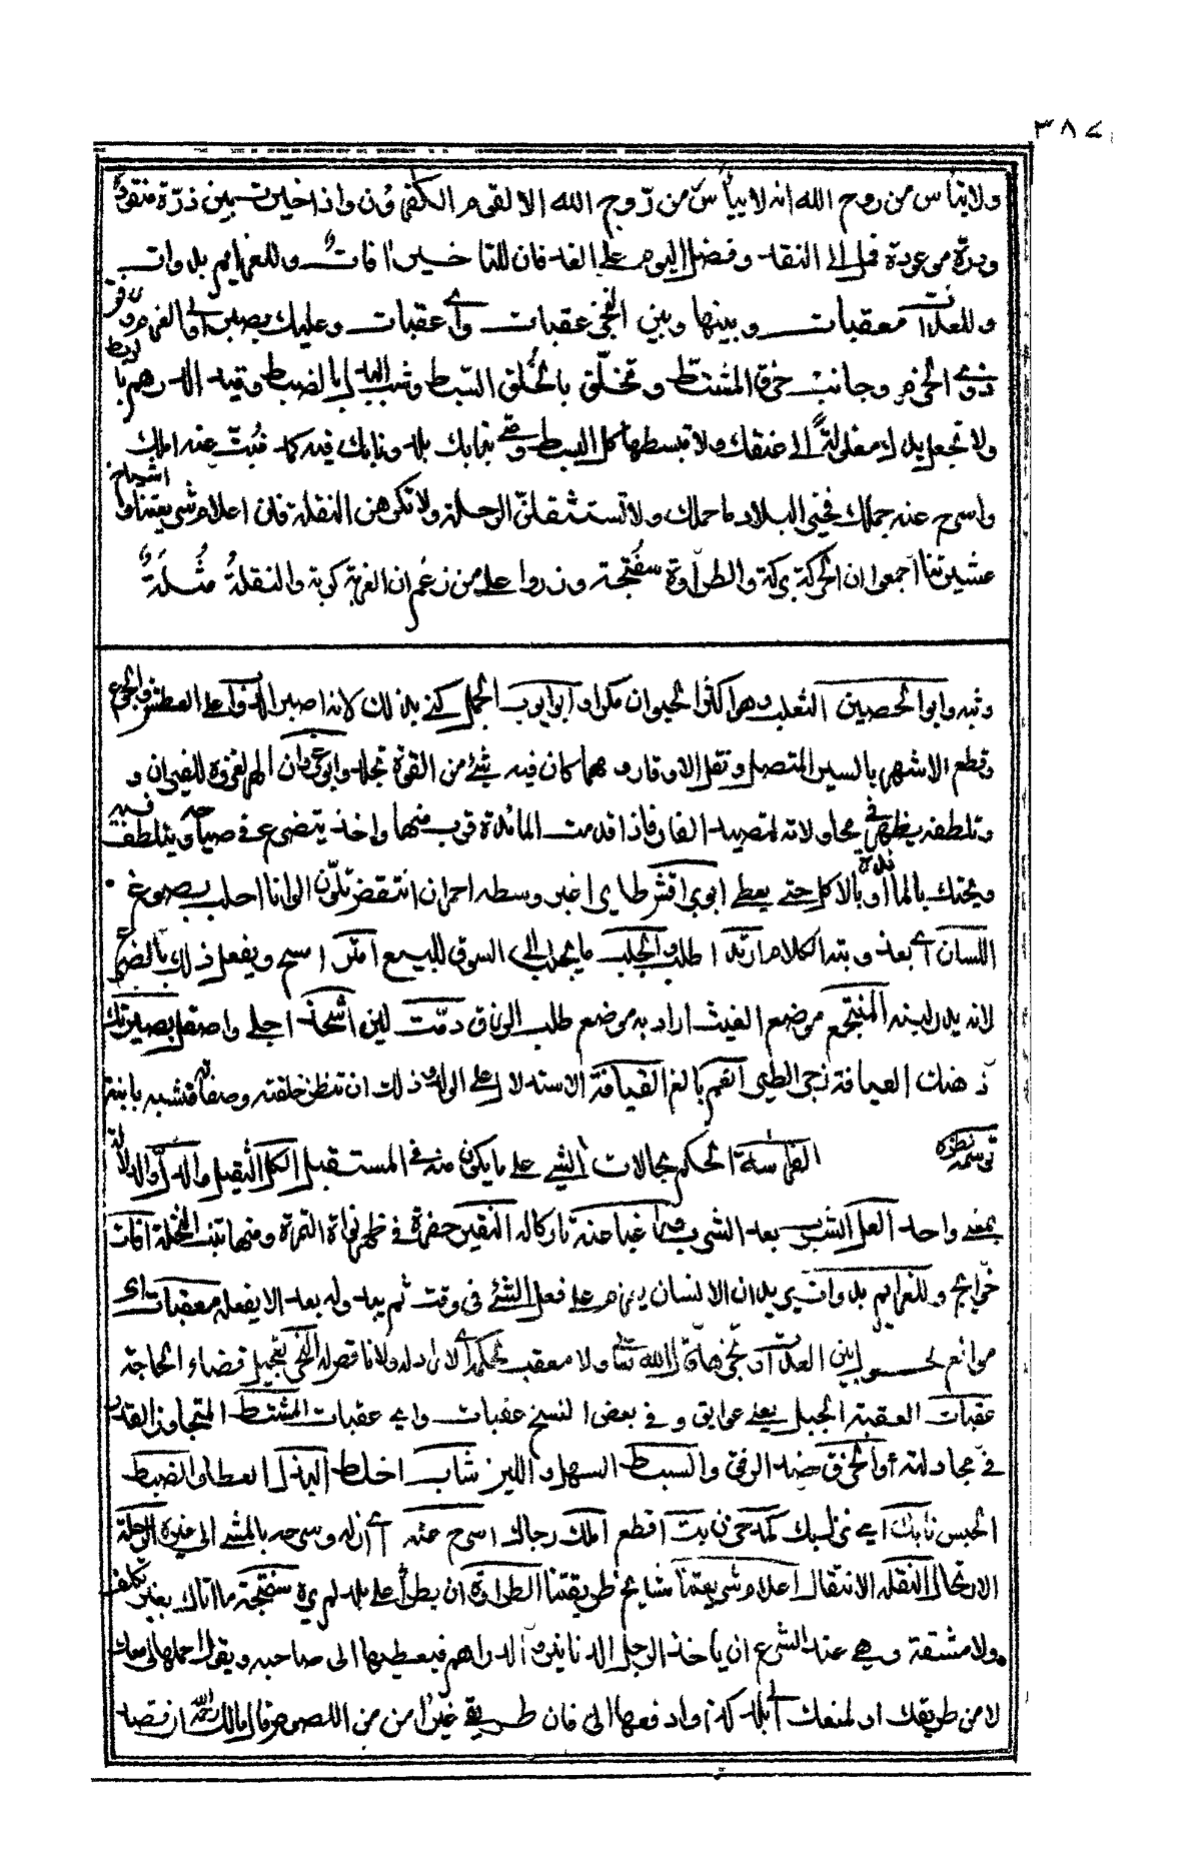 ٣٨٧
ولا تيأس من روح الله انه لا ييأس من رّوح الله الا القوم الكفرون واذا خيرت بين ذرّة منقودة
ودرّة موعودة فمل الى النقد وفضل اليوم على الغد فان للتاخير اٰفات وللعزايم بدوات
وللعدات معقبات وبينها وبين النجز عقبات واى عقبات وعليك بصبر اولى العزم ورفق
ذوى الحزم وجانب خرق المشتطّ وتخلّق بالخُلق السّبط وشب البذل بالضبط وقيد الدرهم بالربط
ولا تجعل يدك مغلولة الى عنقك ولا تبسطها كل البسط ومتى نبا بك بلد ونابك فيه كمد فبُتّ عنه املك
واسرح عنه جملك فخير البلاد ما حملك ولا تستثقلن الرحلة ولا تكرهن النقلة فان اعلام شريعتنا واشياخ
عشيرتنا اجمعوا ان الحركة بركة والطراوة سفتجة وزروا على من زعم ان الغربة كربة والنقلة مُثلة
وثبه وابو الحصين الثعلب وهو اكثر الحيوان مكرا وابو ايوب الجمل كنى بذلك لانه اصبر الدواب على العطش والجوع
وقطع الاشهر بالسير المتصل وثقل الاوقار وهما كان فيه شئ من القوة تجلد وابو غزوان الهر لغزوه للفيران و
وتلطفه يظهر فى محاولاته لتصيد الفار فاذا قدمت المائدة قرب منها واخذ يتضرع فى صياحه ويتلطف فيه
ويحتك بالمائدة او بالاكل حتى يعطى ابو براقش طاير اغبر وسطه احمر ان انتفض تلوّن الوانا احلب بصوغ
اللسان اى بعذوبته الكلام ارتد اطلب والجلب ما يجلب الى السوق للبيع امتر اسح ويفعل ذلك بالضرع
لانه يدر لبنه المنتجع موضع الغيث اراد به موضع طلب الرزاق دمّث لين اشحذ اجلى واصقل بصيرتك
ذهنك العيافة زجر الطير القم بالغ القيافة الاستدلال على الولد وذلك ان تنظر خلقته وصفاته فتشبه بابنه
الفراسة الحكم بحالات الشئ على ما يكون منه فى المستقبل الكل الثقيل والدل والدلالة
بمعنى واحد العل الشرب بعد الشرب غبا عنه تاركا له النقير حفرة فى ظهر نواة التمرة ومنها تنبت النخلة افات
خوايج وللعزايم بدوات يريد ان الانسان يعزم على فعل الشئ فى وقت ثم يبدوله بعد الا يفعله معقبات اى
موانع تحول بين العدات ونجزها قال الله تعالى ولا معقب لحكمه اى لا راد له ولا ناقص له النجز تعجيل قضاء الحاجة
عقبات العقبة الجبل يعنى عوايق وفى بعض النسخ عقبات واى عقبات المشتط المتجاوز القدر
فى مجادلته او الخرق ضد الرفق والسبط السهل واللين شاب اخلط البذل العطا والضبط
الحبس نابك اى نزل بك كمد حزن بت اقطع املك رجاك اسرح عنه اى ازله وسرحه بالمشى الى غيره الرحلة
الارتحال النقلة الانتقال اعلام شريعتنا مشايخ طريقتنا الطراوة ان يطرأ على بلد لم يره سفتجة ما اتاك بغير تكلف
ولا مشقة وهى عند الشرع ان ياخذ الرجل الدنانير والدراهم فيعطيها الى صاحبه ويقول احملها الى معك
لامن طريقك او لمنعك الى بلد كذا وادفعها الى فان طريقى غير امن من اللصوص فقال مالك رحمه الله ان قصد